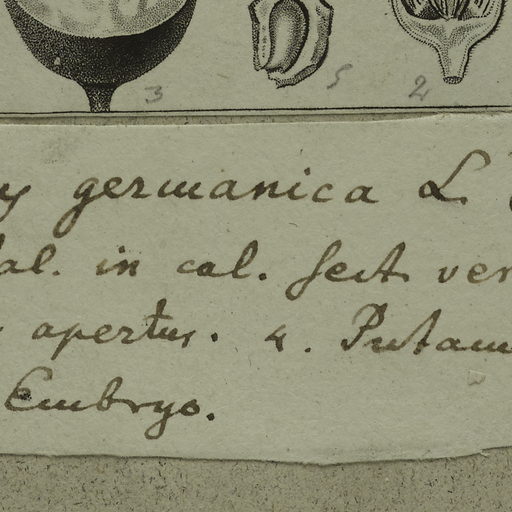 3 5 2
germanica L.
in cal. sect. ver
apertus. 4. Putam
Embryo.